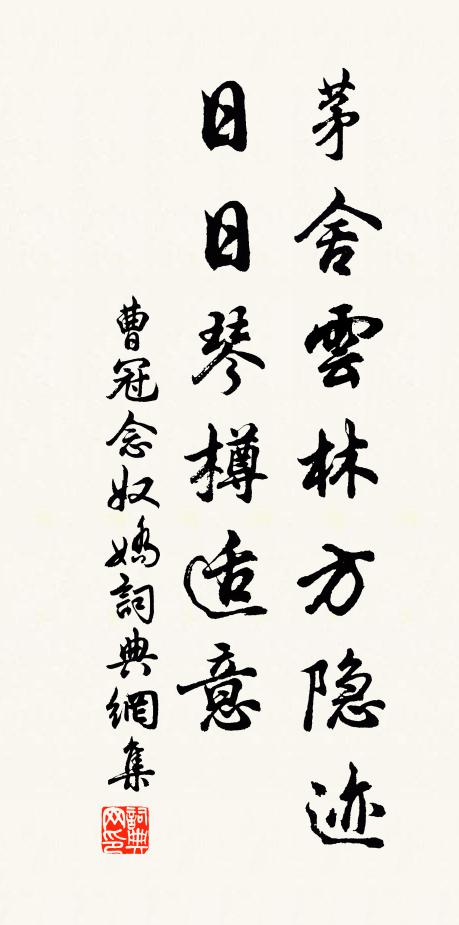 茅舍雲林方隐迹
日日琴樽适意
曹冠念奴嬌詞典網集
詞典网印